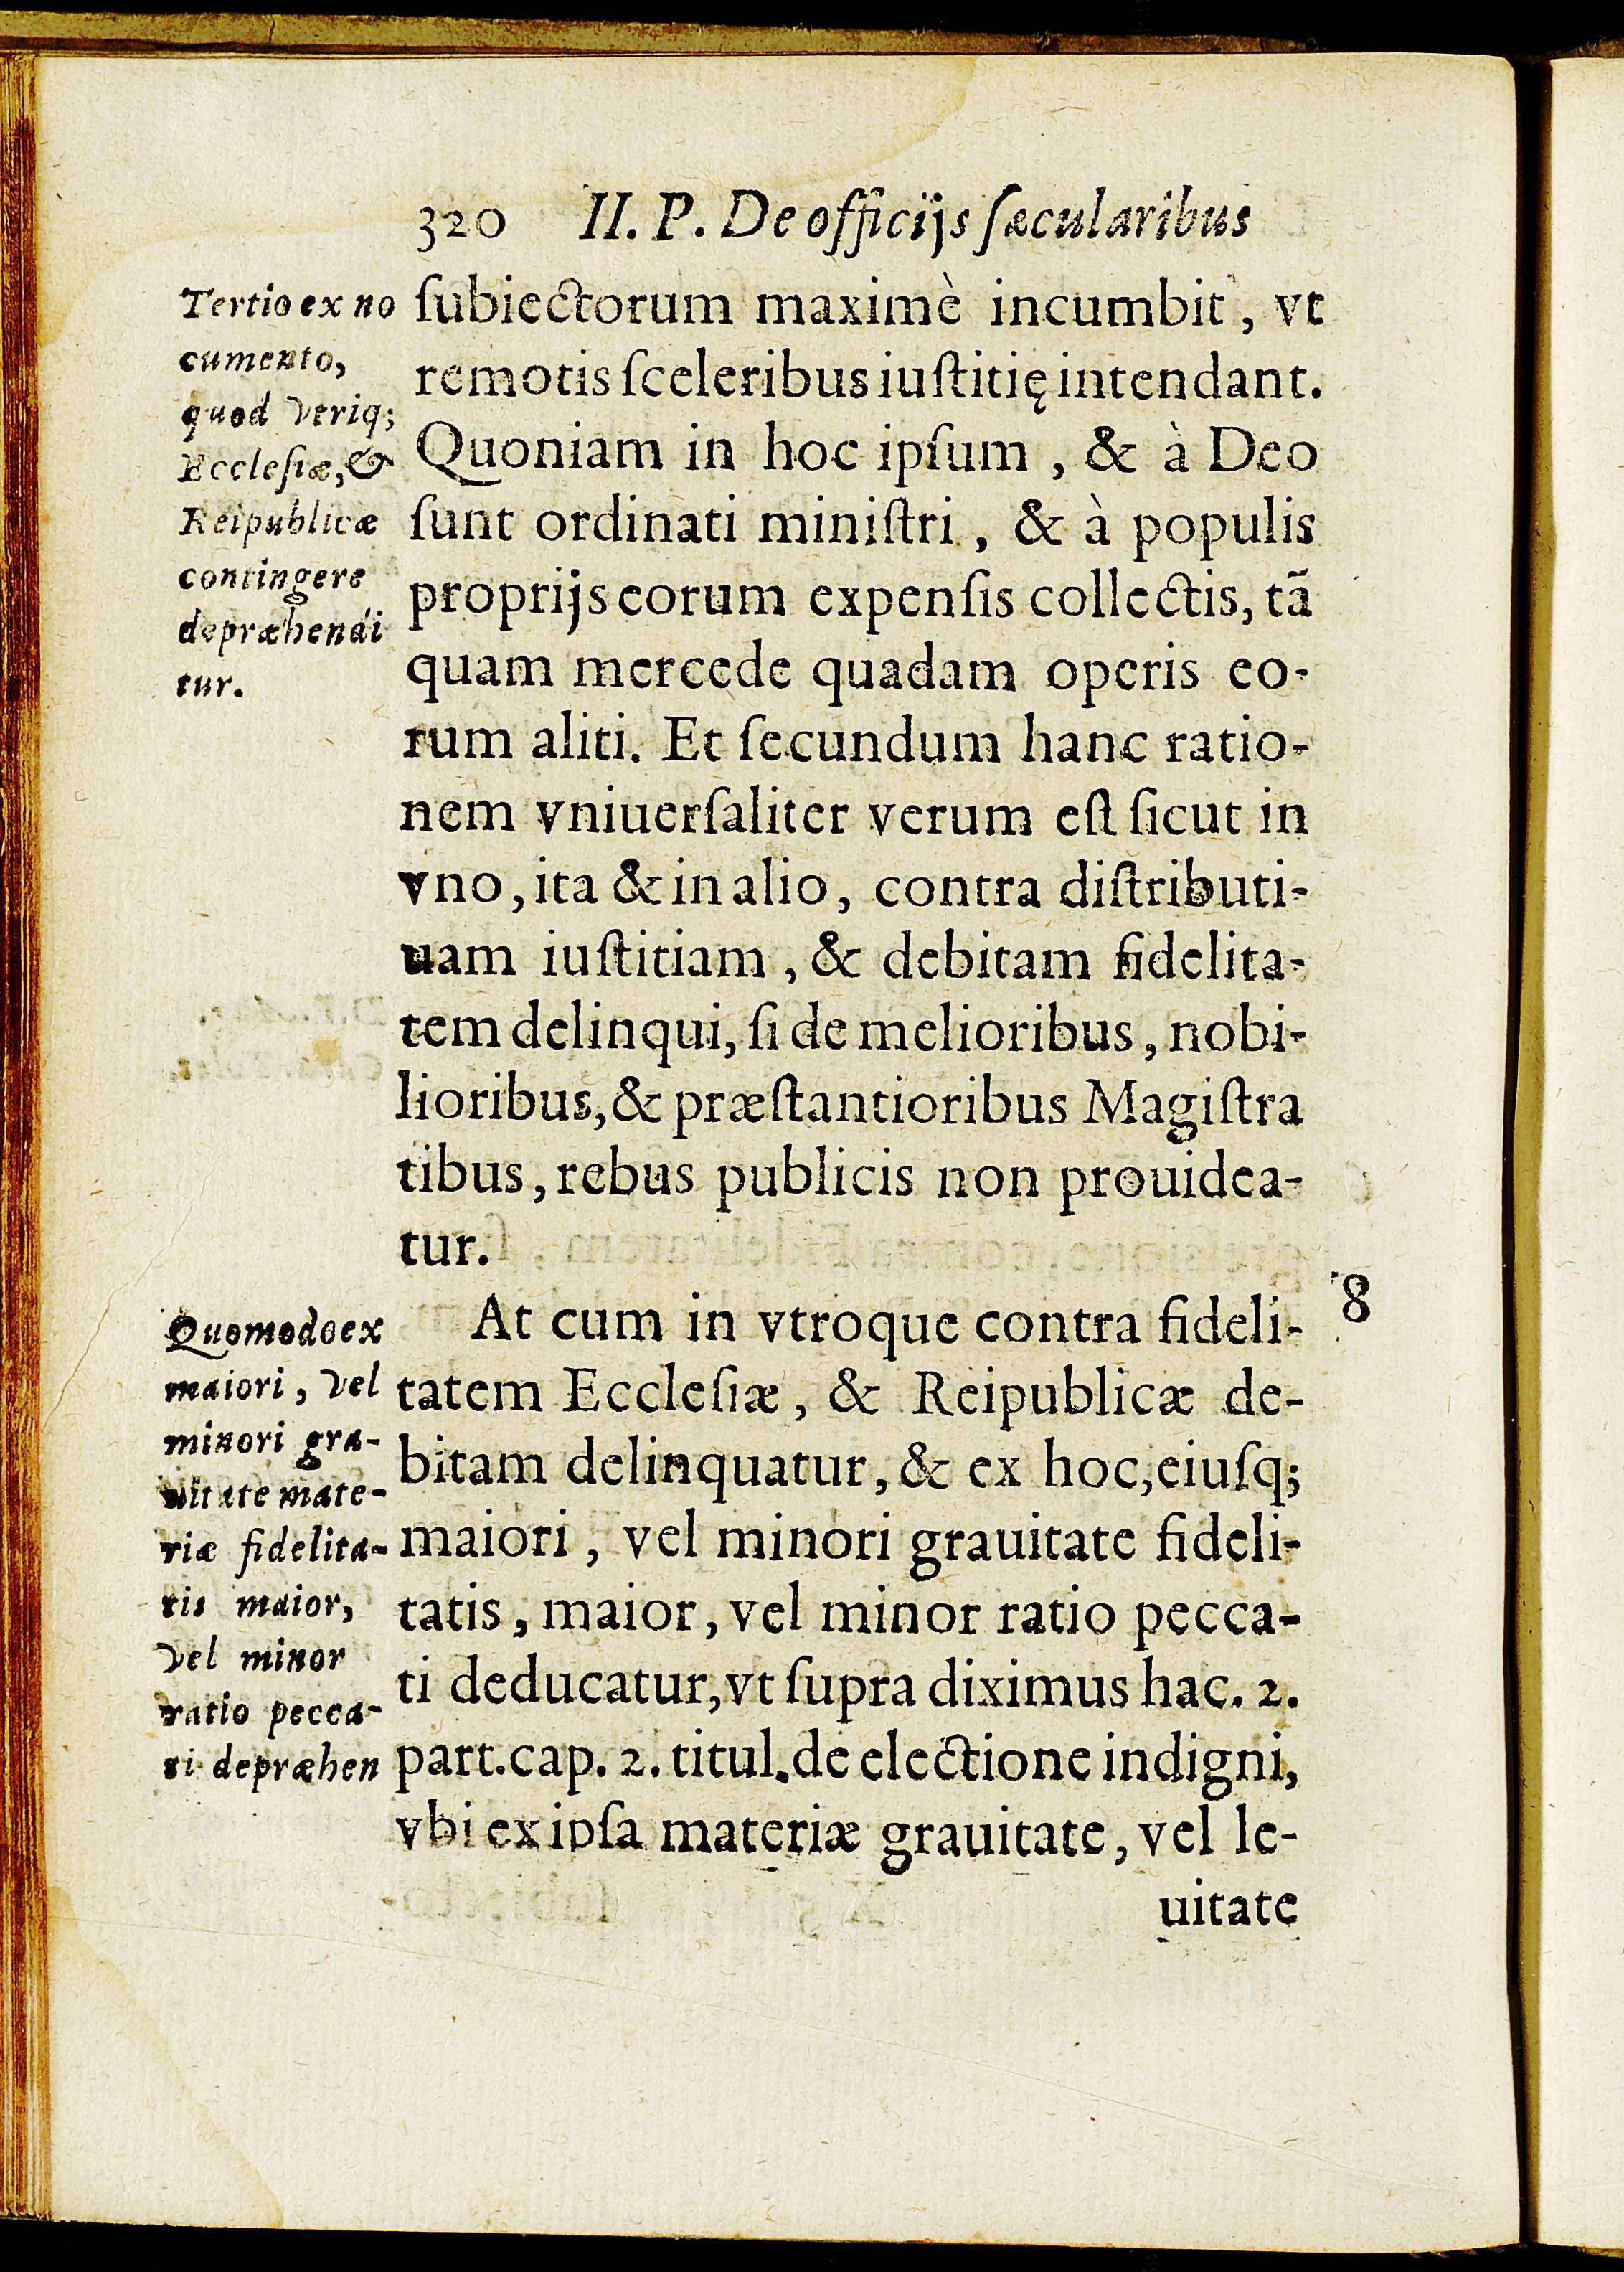 320 II. P. De officijs ſæcularibus
Tertio ex no
cumento,
quod vtriq;
Eccleſiæ, &
Reipublicæ
contingere
depræhendi
tur.
ſubiectorum maximè incumbit, vt
remotis ſceleribus iuſtitię intendant.
Quoniam in hoc ipſum, & à Deo
ſunt ordinati miniſtri, & à populis
proprijs eorum expenſis collectis, tã
quam mercede quadam operis eo-
rum aliti. Et ſecundum hanc ratio-
nem vniuerſaliter verum eſt ſicut in
vno, ita & in alio, contra diſtributi-
uam iuſtitiam, & debitam fidelita-
tem delinqui, ſi de melioribus, nobi-
lioribus, & præſtantioribus Magiſtra
tibus, rebus publicis non prouidea-
tur.
8
Quomodo ex
maiori, vel
minori gra-
uitate mate-
riæ fidelita-
tis maior,
vel minor
ratio pecca-
ti depræhen
At cum in vtroque contra fideli-
tatem Eccleſiæ, & Reipublicæ de-
bitam delinquatur, & ex hoc, eiuſq;
maiori, vel minori grauitate fideli-
tatis, maior, vel minor ratio pecca-
ti deducatur, vt ſupra diximus hac. 2.
part. cap. 2. titul. de electione indigni,
vbi ex ipſa materiæ grauitate, vel le-
uitate